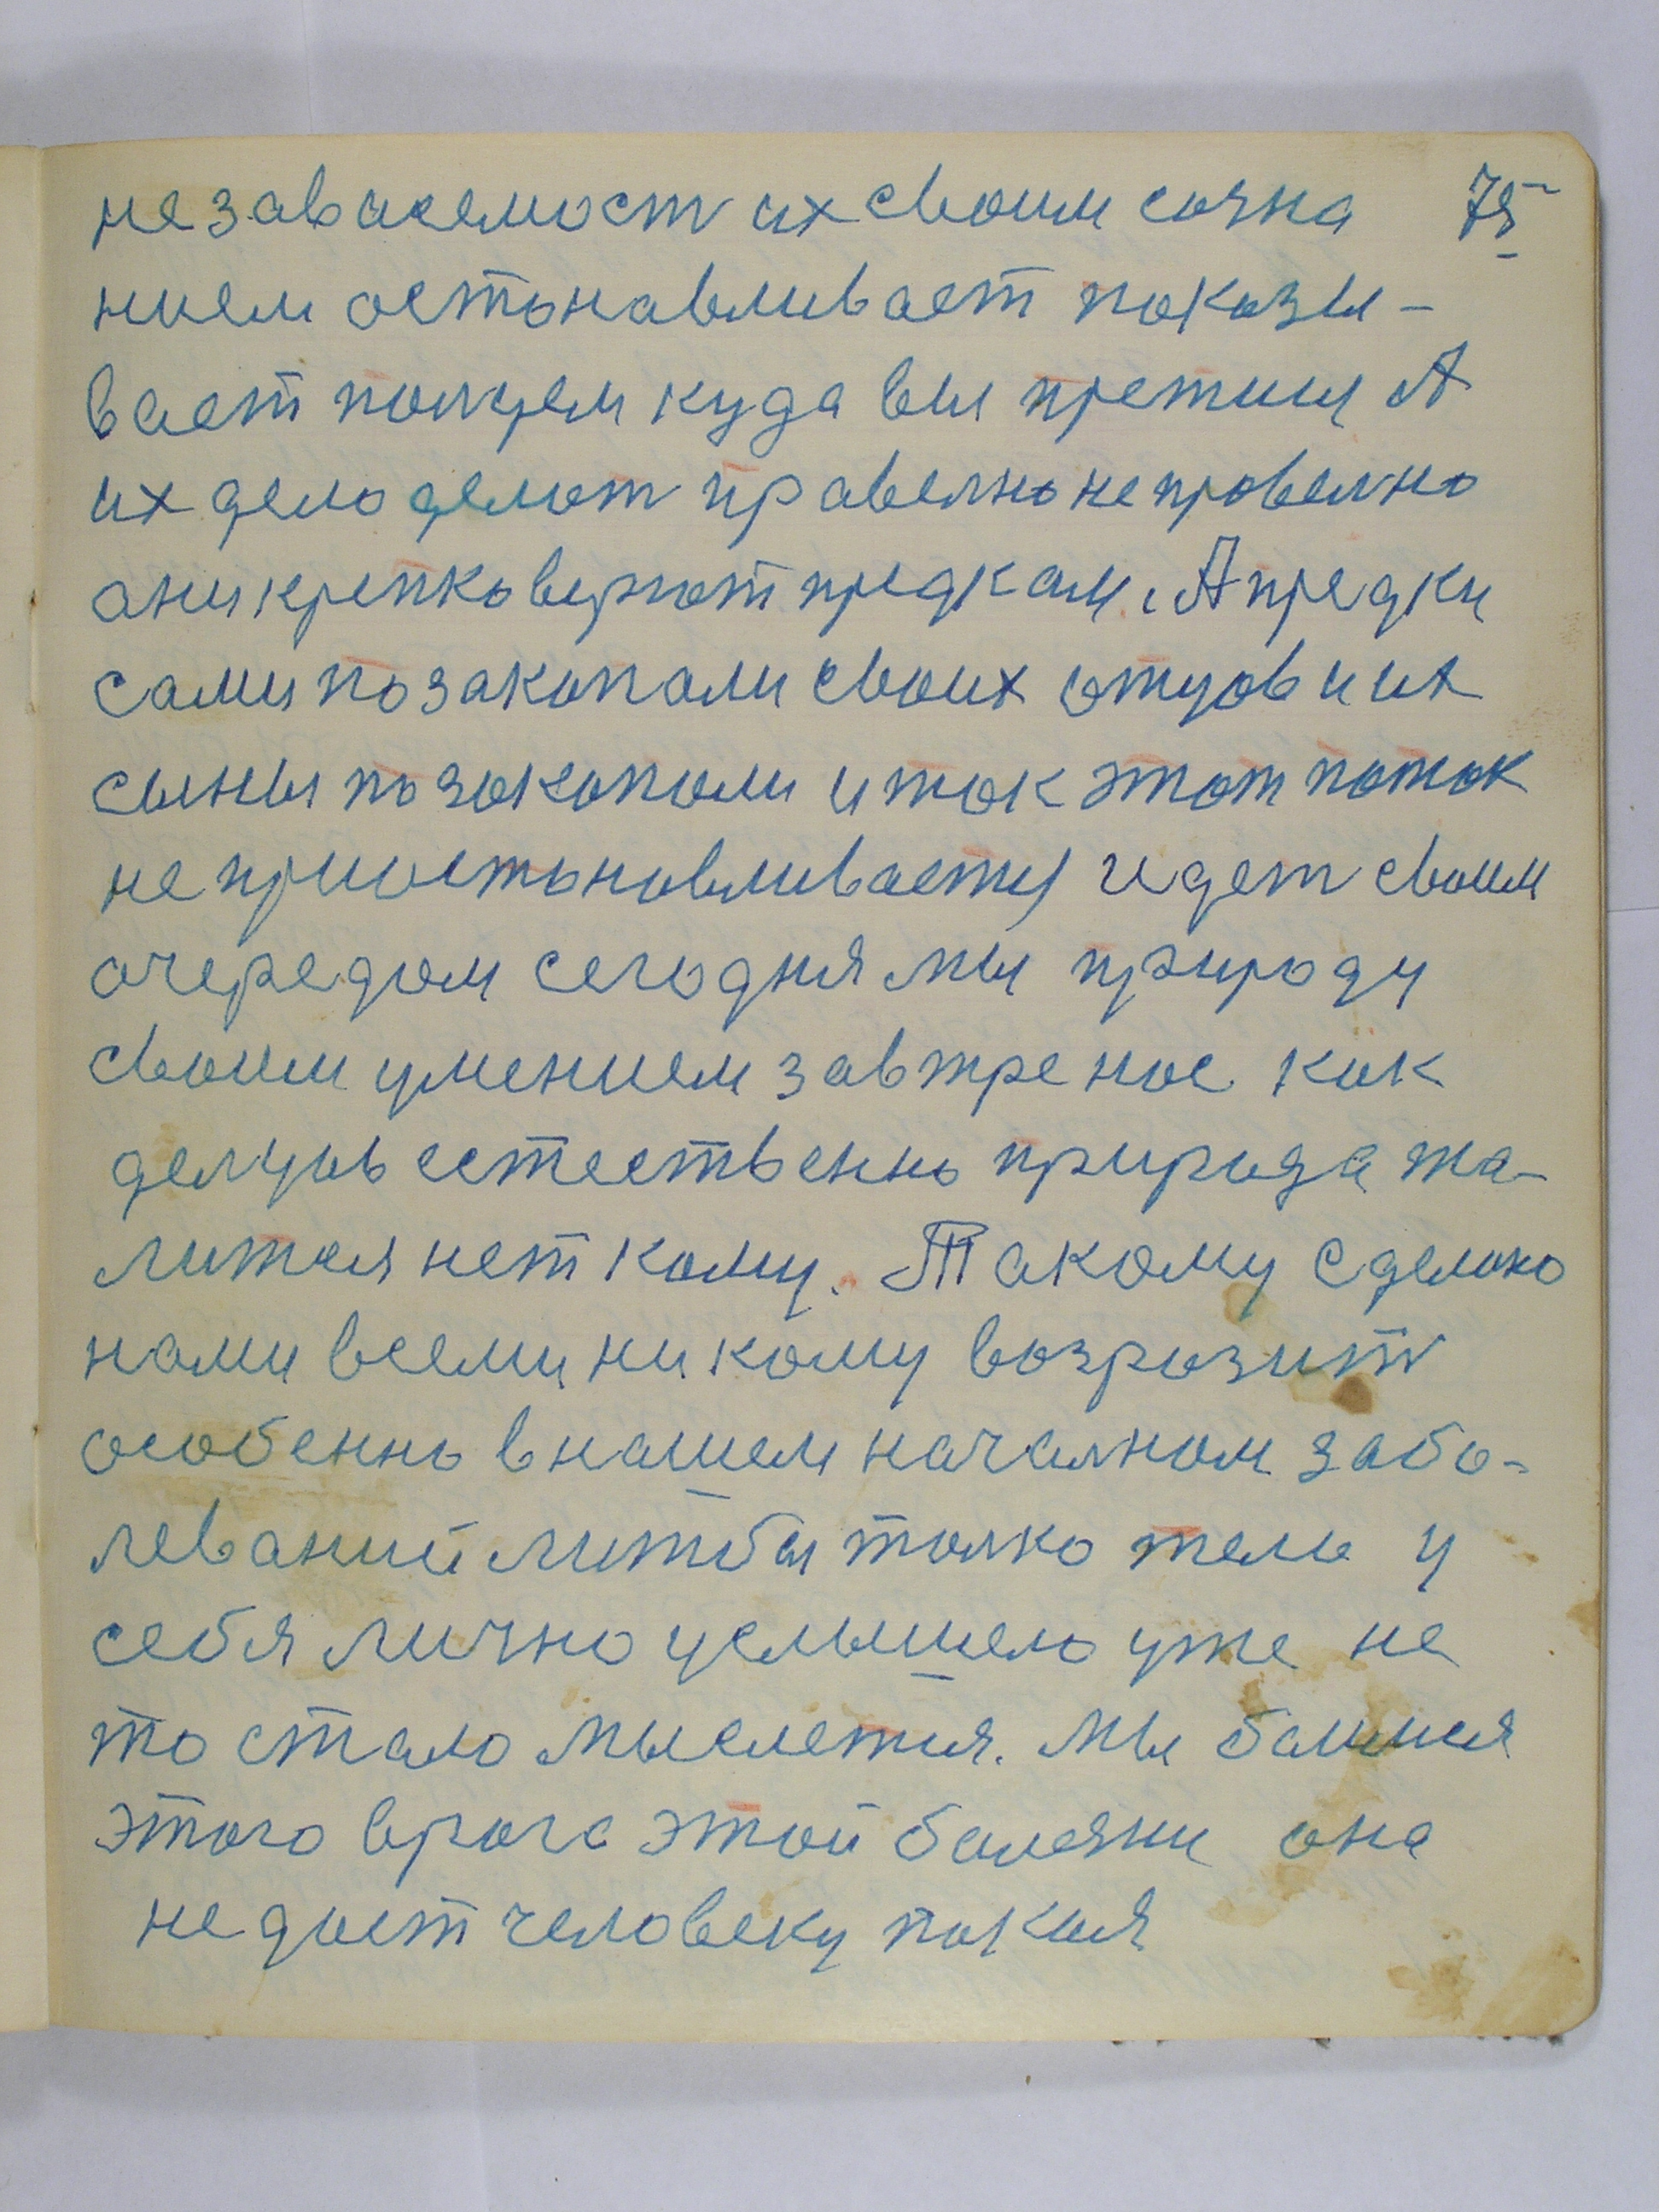 незавасемост их своим созна 75
нием останавливает показы-
вает полцем куда вы претиш А
их дело делат правелно неправелно
ани крепко верют предкам. А предки
сами позакопали своих отцов и их
сыны позокопали и так этот поток
не приостановливаетця идет своим
очередом сегодня мы природу
своим умением завтре нас как
делцов естественно природа жа-
литея нет кому. Такому сделоко
нами всеми никому возрозит
особенно в нашем началном забо-
леваний литбы толко тело у
себя лично услышело уже не
то стало мыслетия. мы боимся
этого врога этой болезни она
не дает человеку покоя